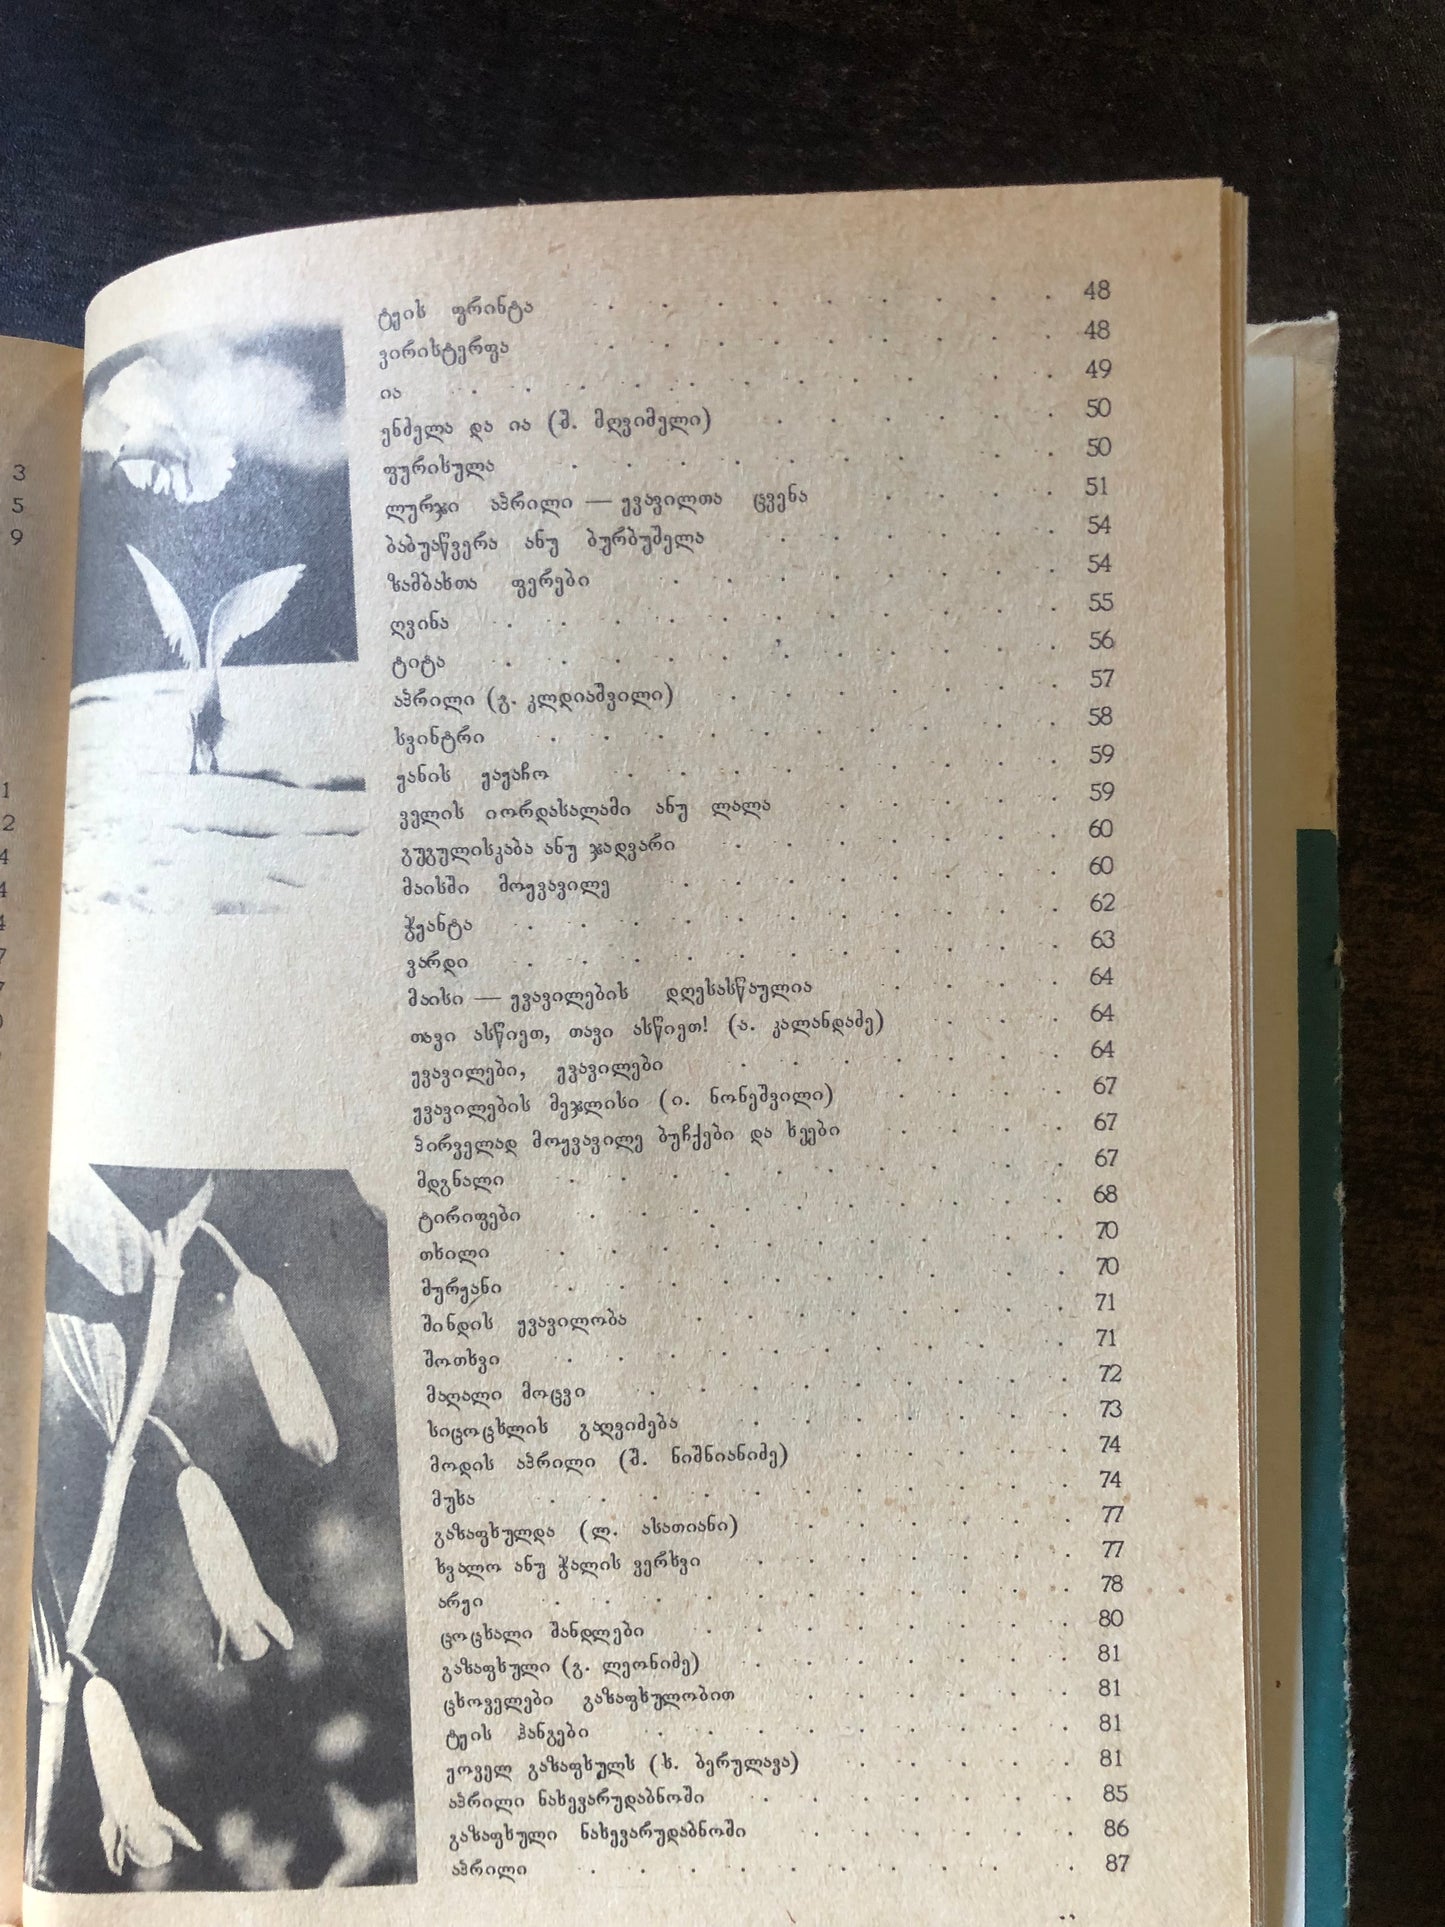 3
5
9
1
2
4
4
4
7
7
0
ტყის ფრინტა 48
ვირისტერფა 48
ია 49
ენძელა და ია (შ. მღვიმელი) 50
ფურისულა 50
ლურჯი აპრილი — ყვავილთა ცვენა 51
ბაბუაწვერა ანუ ბურბუშელა 54
ზამბახთა ფერები 54
ღვინა 55
ტიტა 56
აპრილი (გ. კლდიაშვილი) 57
სვინტრი 58
ყანის ყაყაჩო 59
ველის იორდასალამი ანუ ლალა 59
გუგულისკაბა ანუ ჯადვარი 60
მაისში მოყვავილე 60
ჭყანტა 62
ვარდი 63
მაისი — ყვავილების დღესასწაულია 64
თავი ასწიეთ, თავი ასწიეთ! (ა. კალანდაძე) 64
ყვავილები, ყვავილები 64
ყვავილების მეჯლისი (ი. ნონეშვილი) 67
პირველად მოყვავილე ბუჩქები და ხეები 67
მდგნალი 67
ტირიფები 68
თხილი 70
მურყანი 70
შინდის ყვავილობა 71
შოთხვი 71
მაღალი მოცვი 72
სიცოცხლის გაღვიძება 73
მოდის აპრილი (შ. ნიშნიანიძე) 74
მუხა 74
გაზაფხულდა (ლ. ასათიანი) 77
ხვალო ანუ ჭალის ვერხვი 77
არყი 78
ცოცხალი შანდლები 80
გაზაფხული (გ. ლეონიძე) 81
ცხოველები გაზაფხულობით 81
ტყის ჰანგები 81
ყოველ გაზაფხულს (ხ. ბერულავა) 81
აპრილი ნახევარუდაბნოში 85
გაზაფხული ნახევარუდაბნოში 86
აპრილი 87